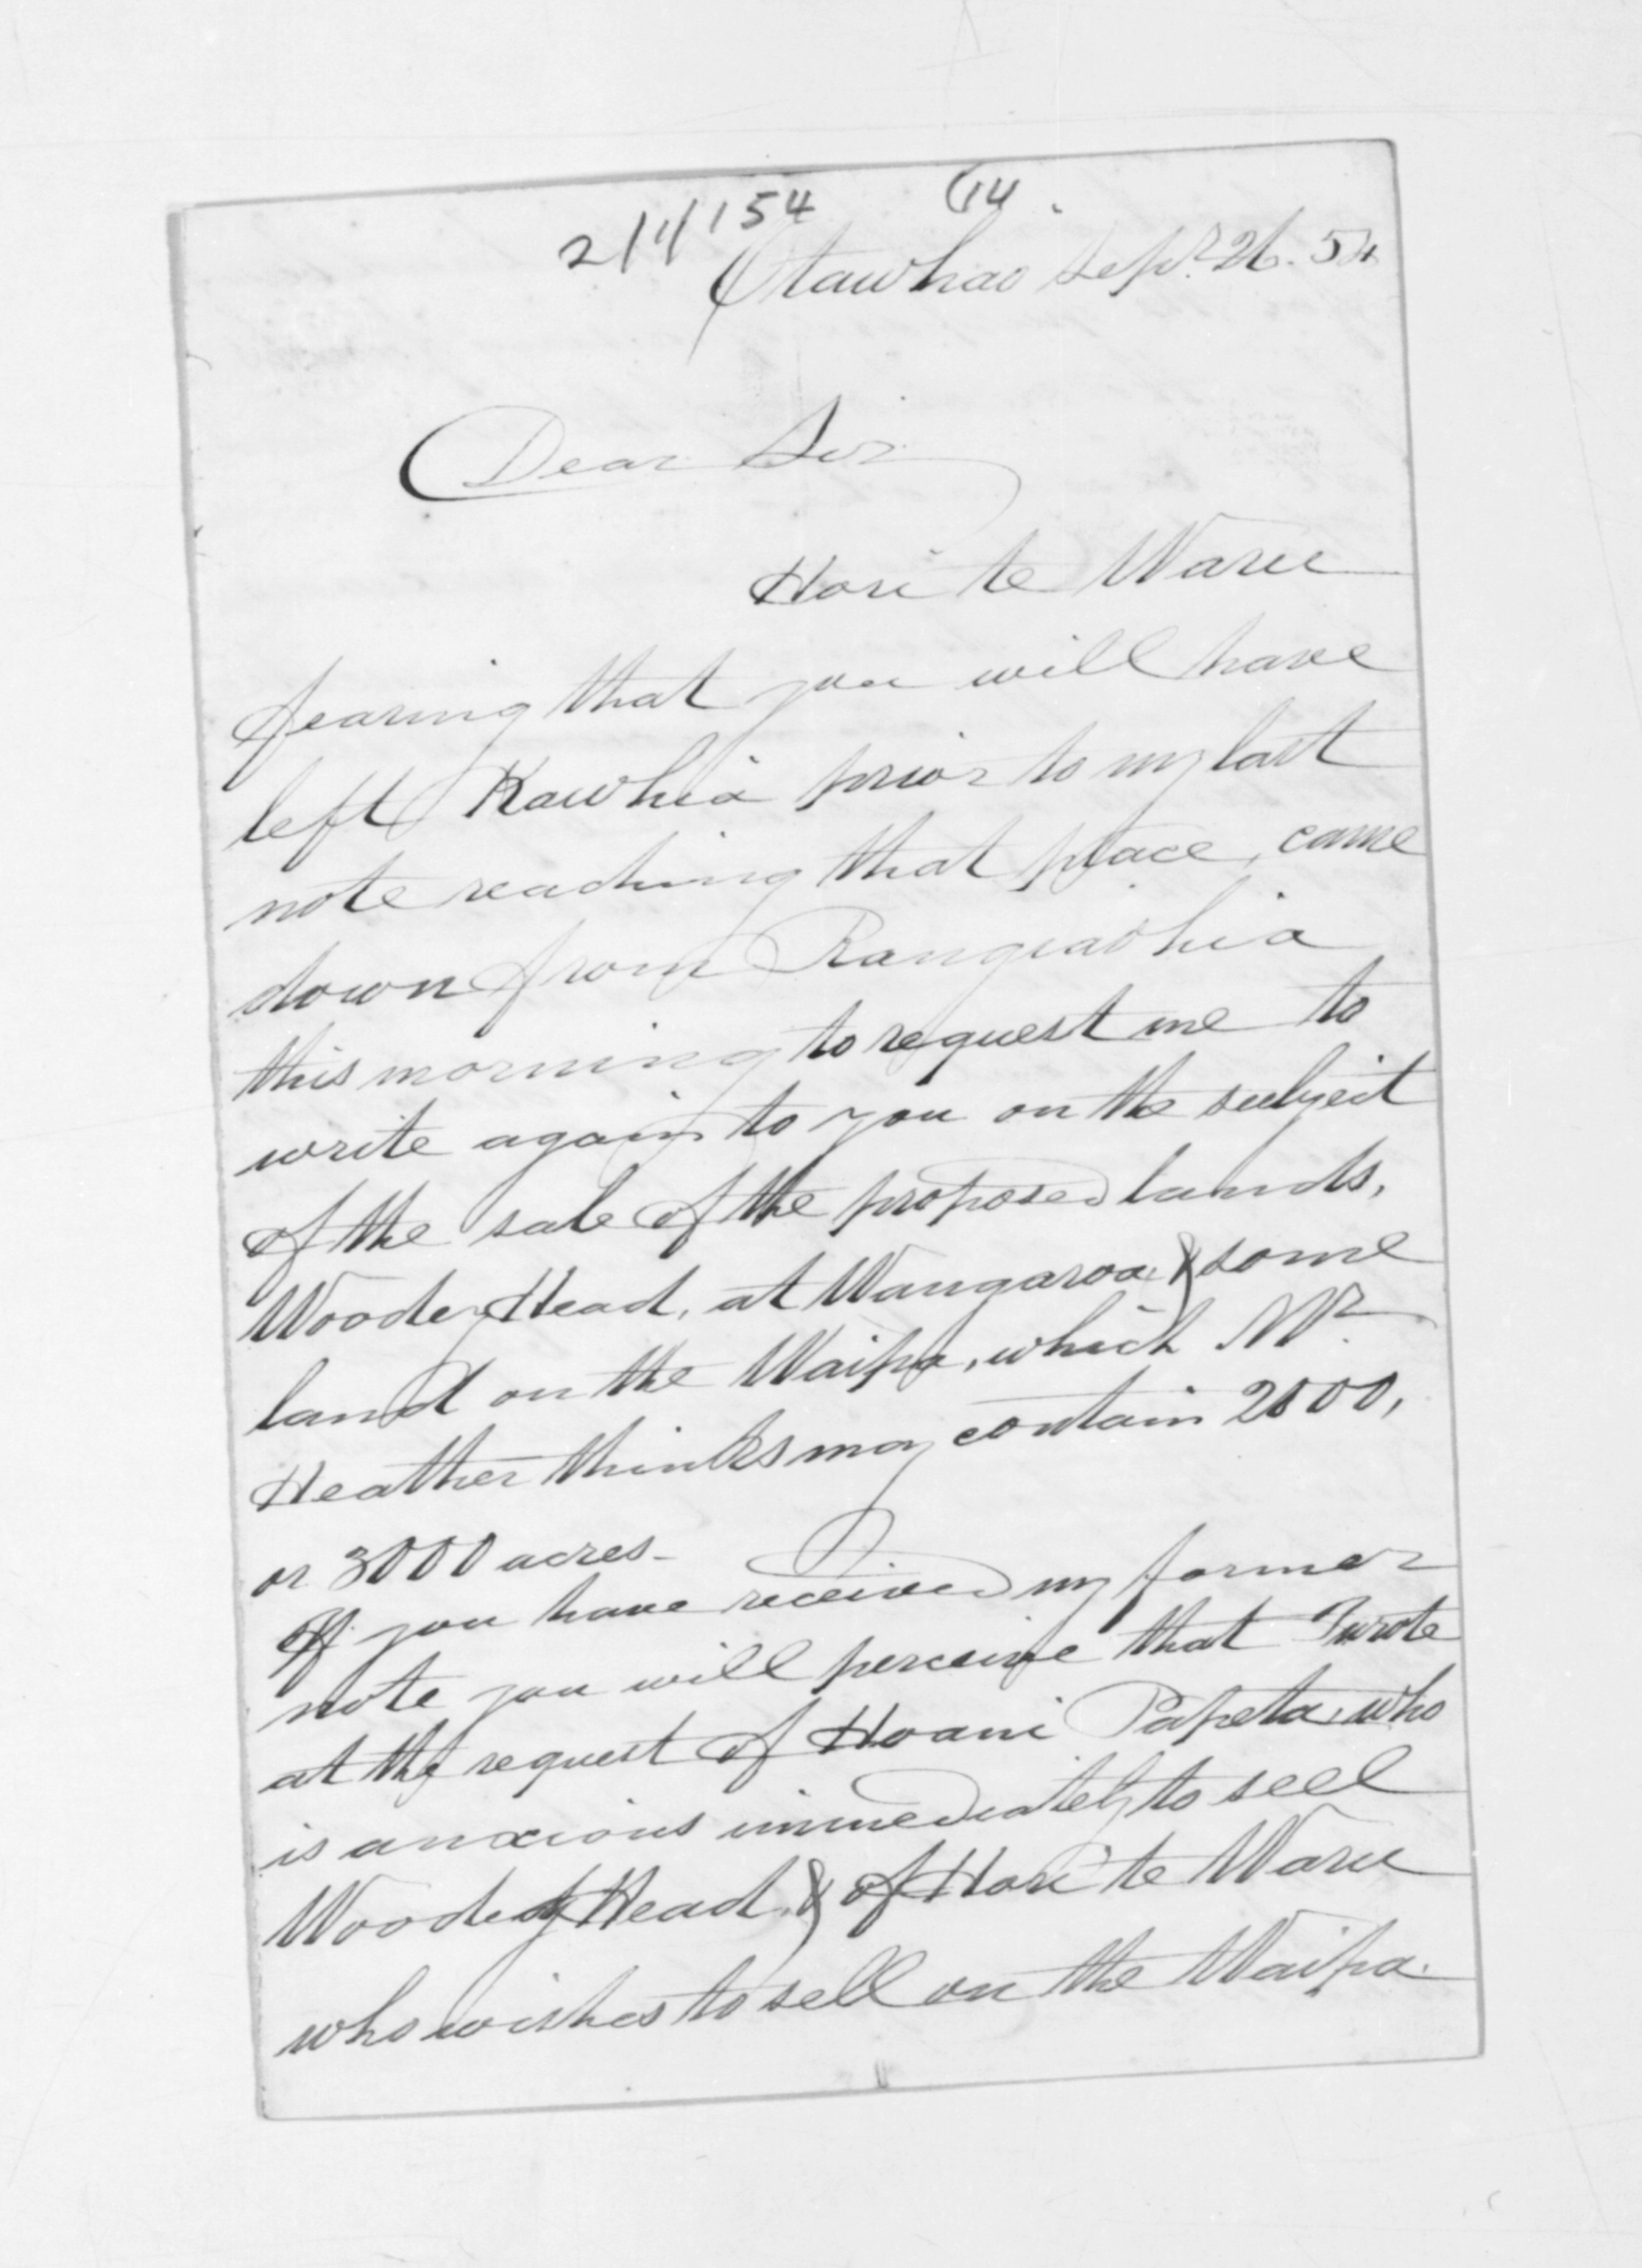 2/11/54 (14
Otawhao Sepr. 26. 54
Dear Sir
Hori te Waru
fearing that you will have
left Kawhia prior to my last
note reaching that place, came
down from Rangiaohia
this morning to request me to
write again to you on the subject
of the sale of the proposed lands,
Woody Head, at Wangaroa & some
land on the Waipa, which Mr.
Heather thinks may contain 2000,
or 3000 acres -
If you have received my former
note you will perceive that I wrote
at the request of Hoani Papeta, who
is anxious immediately to sell
Woody Head, & of Hori te Waru
who wishes to sell on the Waipa.